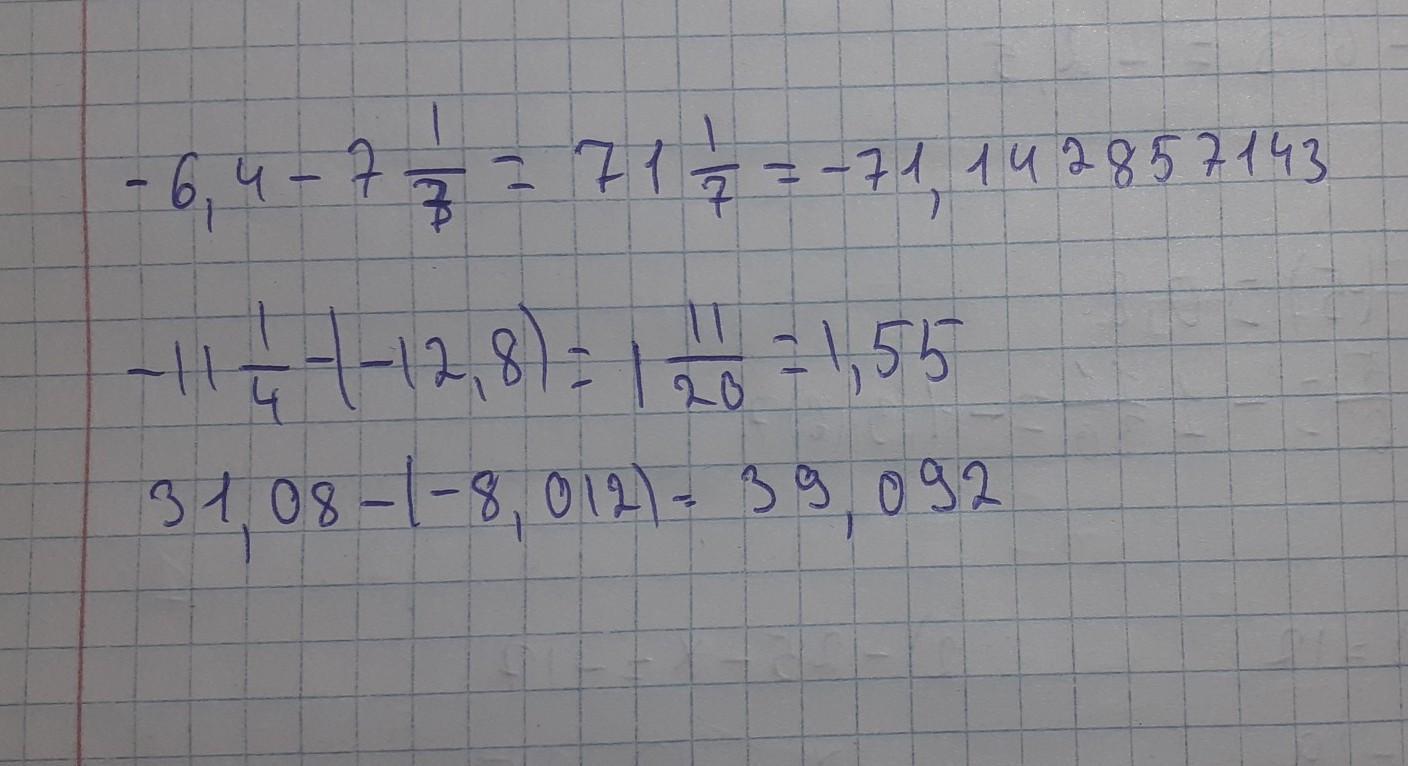 -6,4 - 7 1/7 = 71 1/7 = -71,142857143
-11 1/4 - (-12,8) = 1 11/20 = 1,55
31,08 - (-8,012) = 39,092